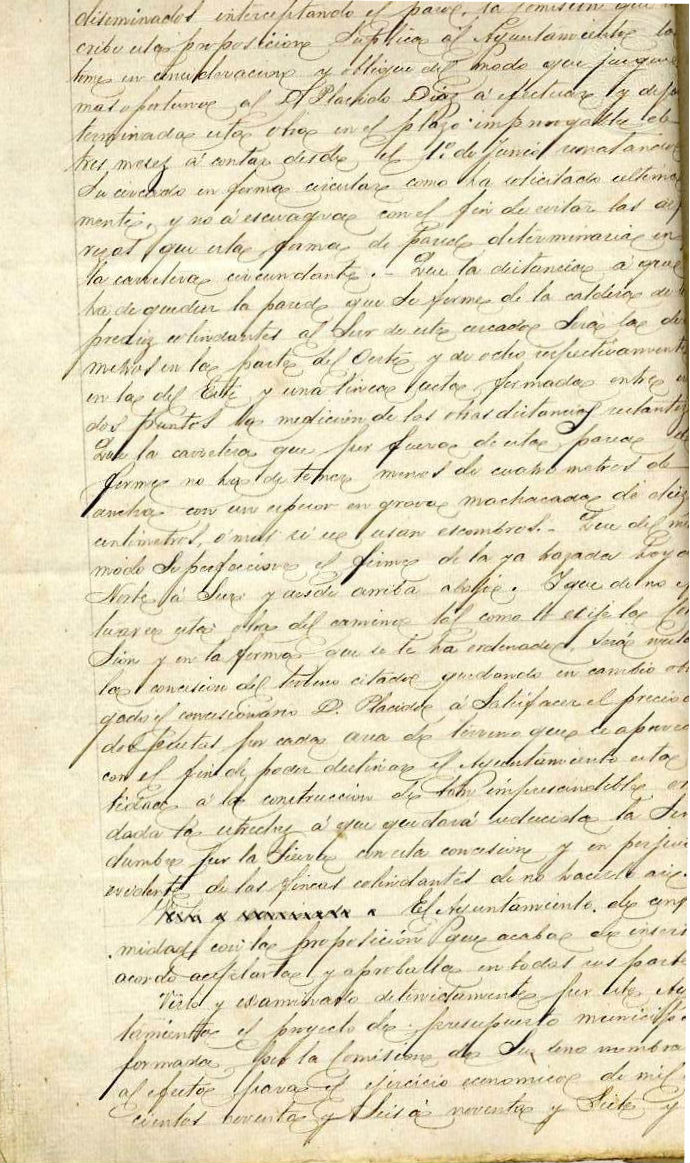 diseminados interceptando el pared, la Comisión que
cribe esta proposición Suplica al Ayuntamiento la
tome en consideracion y obligue del modo que juzgue
mas oportuno al D. Placido Diaz á efectuar y dejar
terminada esta obra en el plazo improrrogable de
tres meses á contar desde el 1.º de junio
Su cercado en forma circular como ha solicitado ultima
mente, y no á escuagra con el fin de evitar las
que esta forma de pared determinaria en
la carretera circundante. - Que la distancia á que
ha de quedar la pared que se forme de la caldera de
colindantes al Sur de este cercado Será la de
metros en la parte del Oeste y de ocho respectivamente
en la del Este y una linea recta formada entre
dos puntos la medición de las otras distancias restantes
Que la carretera que por fuera de esta pared
forme no ha de tener menos de cuatro metros de
ancha con un espesor en grava machacada de diez
centimetros, ó mas si se usan escombros. - Que del mis
modo Se perfeccione el firme de la ya trazada hoy
Norte á Sur y desde arriba abajo. Y que de no
esta obra del camino tal como lo exije la Comi
sion y en la forma que se le ha ordenado, será nula
la concesion del terreno citado quedando en cambio obli
gado el concesionario D. Placido á Satisfacer el precio
dos pesetas por cada area de terreno que
con el fin de poder destinar el Ayuntamiento esta
tidad á la construcción de imprescindible
dada la estrechez á que quedará reducida la Servi
dumbre por la Sierra con esta concesion y en perjuicio
evidente de las fincas colindantes de no hacerlo asi.
El Ayuntamiento de conf
midad con la proposición que acaba de insert
acordo aceptarla y aprobarla en todas sus partes
Visto y examinado detenidamente por este Ayun
tamiento el proyecto de presupuesto municipal
formado por la Comision de Su seno nombrada
al efecto para el ejercicio economico de mil
cientos noventa y Seis á noventa y Siete y